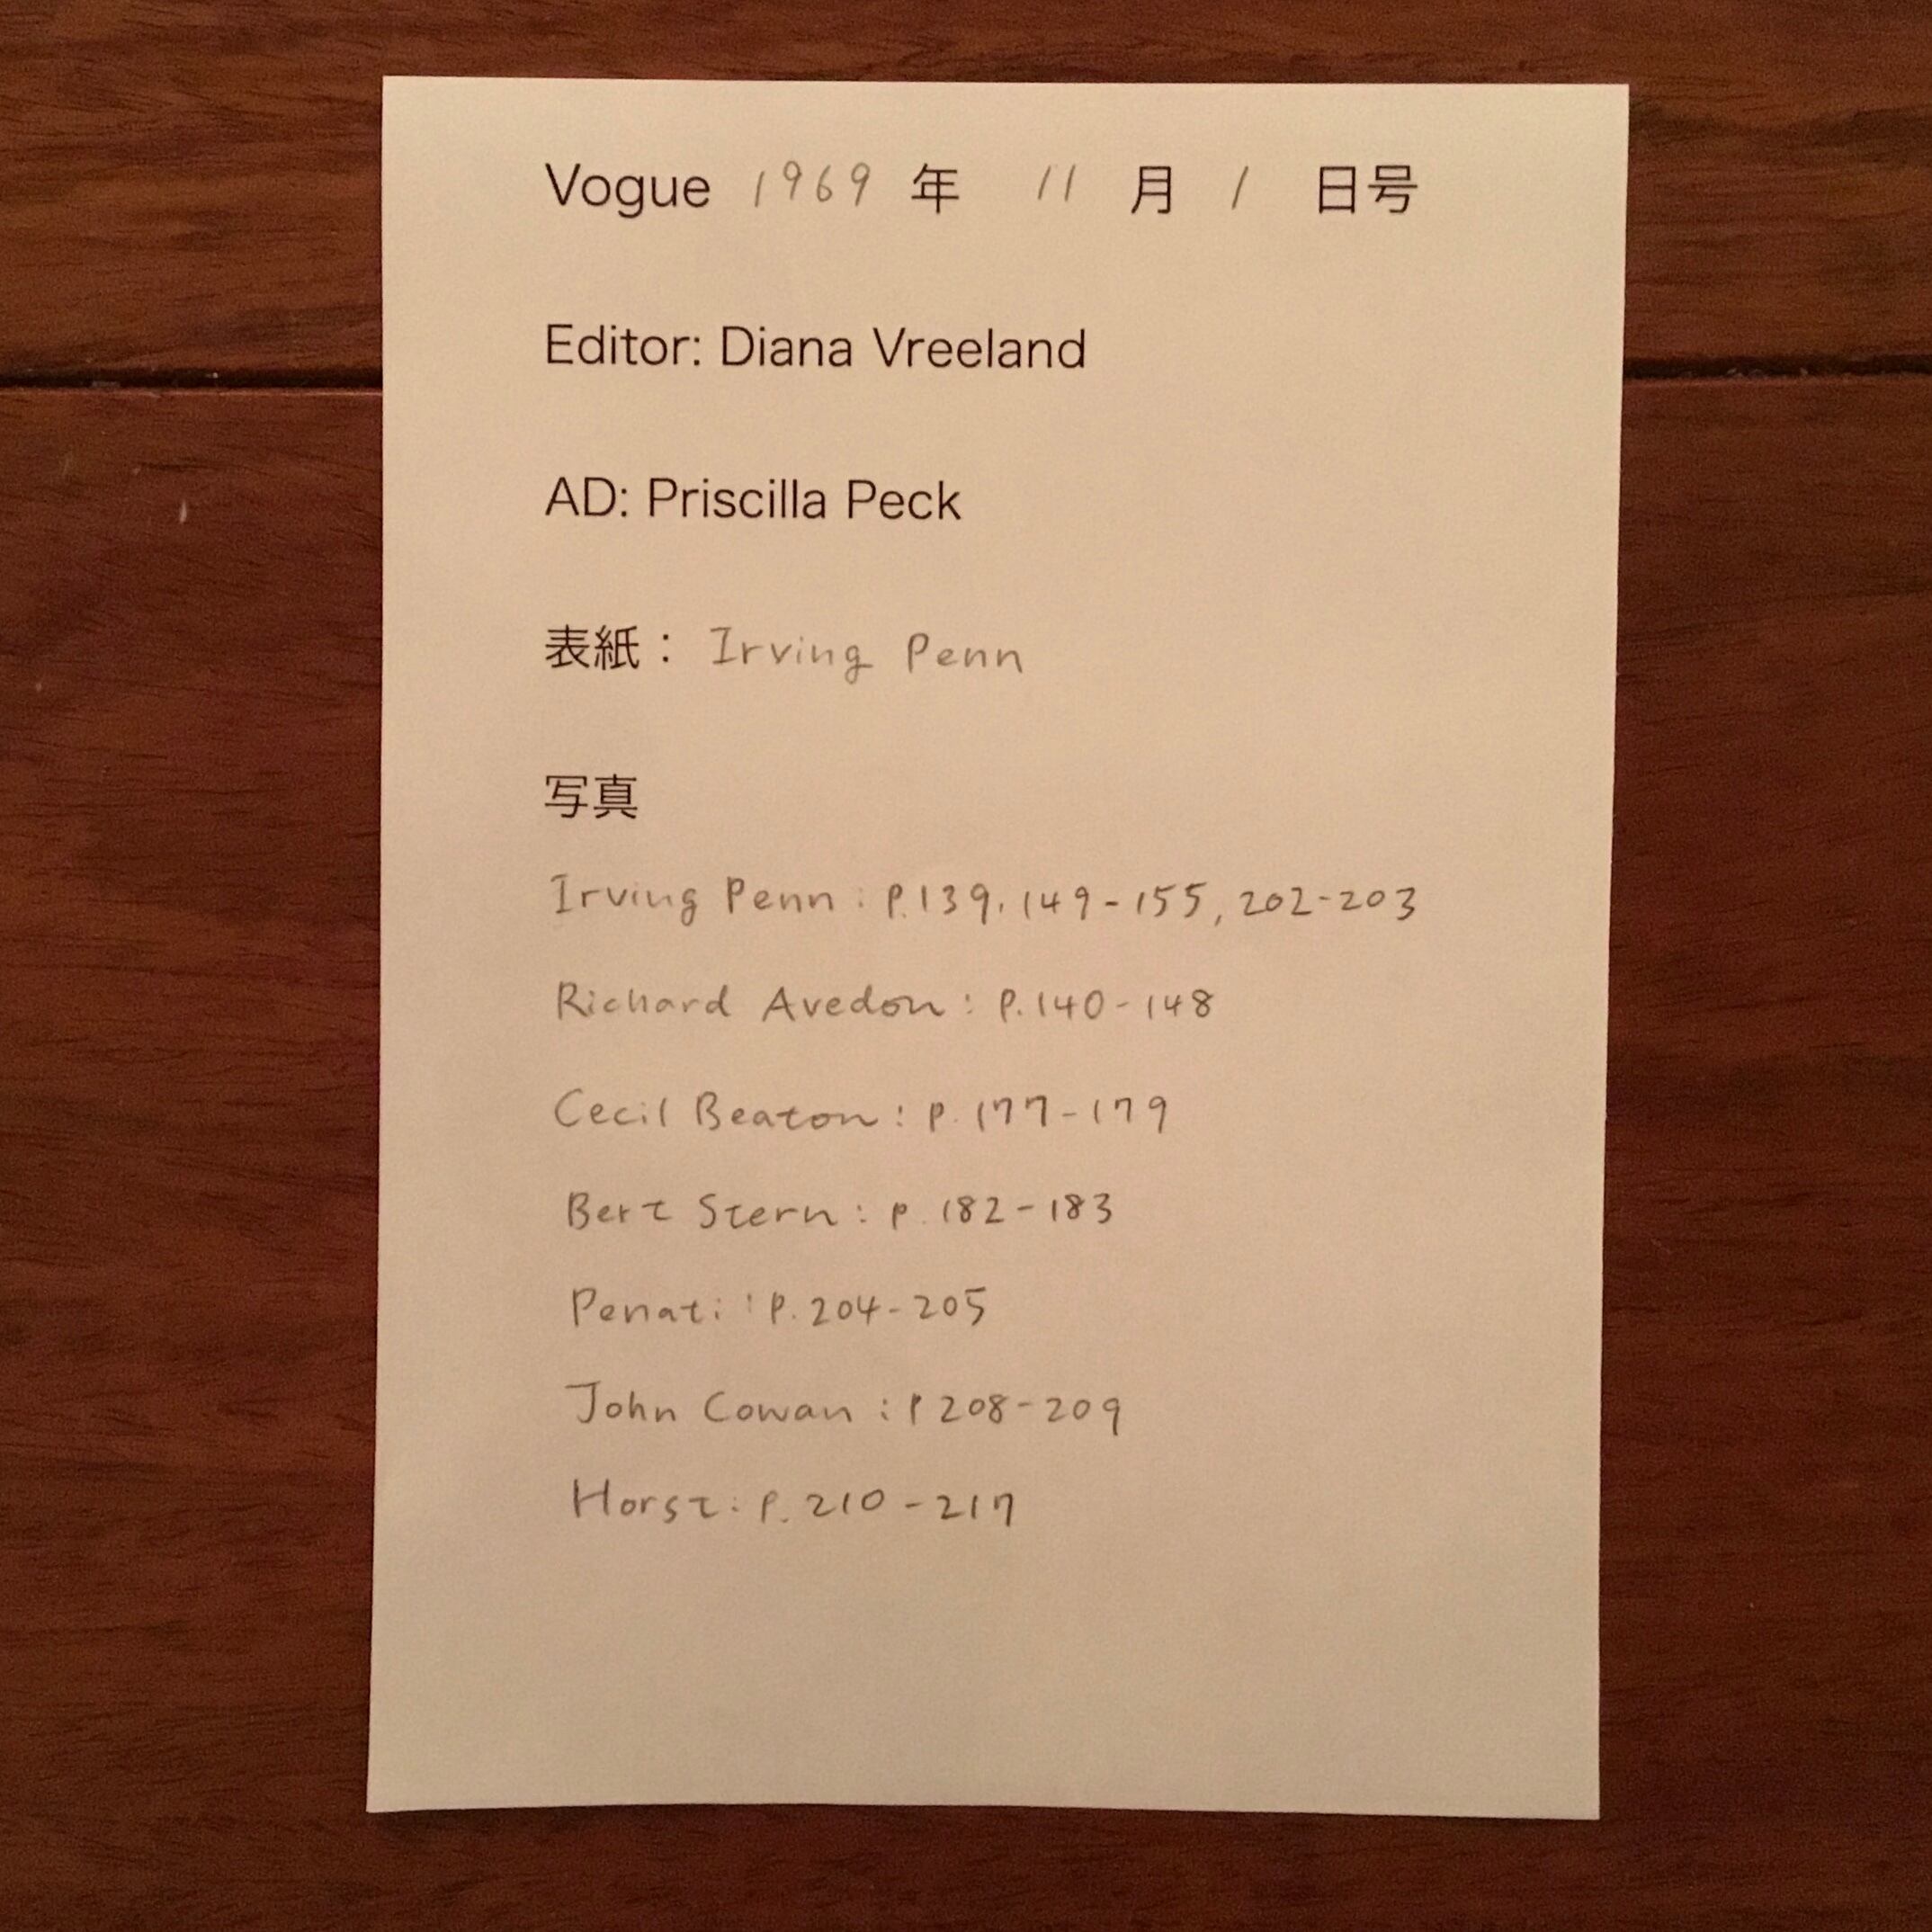 Vogue 1969 年 11 月 1 日号
Editor: Diana Vreeland
AD: Priscilla Peck
表紙： Irving Penn
写真
Irving Penn : P.139, 149-155, 202-203
Richard Avedon : P.140-148
Cecil Beaton : P.177-179
Bert Stern : P.182-183
Penati : P.204-205
John Cowan : P208-209
Horst : P.210-217